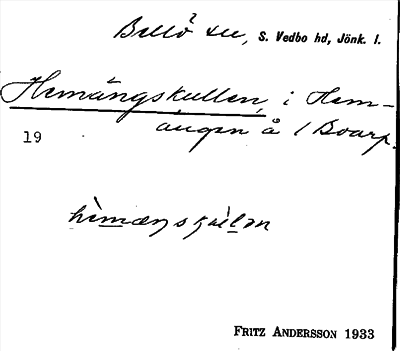 Bellö sn, S. Vedbo hd, Jönk. l.
Hemängskullen, i Hem-
ängen å 1 Boarp.
19
FRITZ ANDERSSON 1933